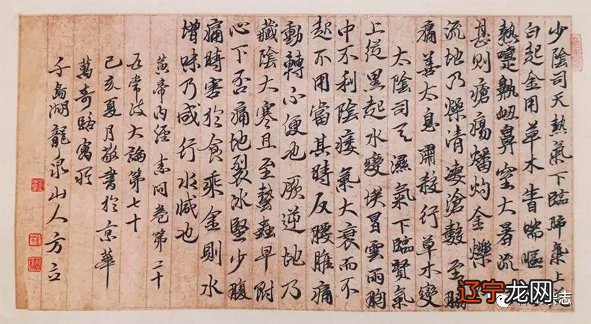 少陰司天熱氣下臨肺氣上
白起金用草木眚喘嘔
熱嚏鼽衄鼻窒大暑流
甚則瘡瘍燔灼金爍
流地乃燥清凄滄數至脇
痛善太息肅殺行草木變
太陰司天濕氣下臨腎氣
上從黑起水變埃冒雲雨胸
中不利陰痿氣大衰而不
起不用當其時反腰脽痛
動轉不便也厥逆地乃
藏陰大寒且至蟄蟲早附
心下否痛地裂水堅少腹
痛時害於食乘金則水
增味乃咸行水減也
黃帝內經素問卷第二十
五常政大論第七十
己亥夏月敬書於京華
萬壽路寓所
島湖龍泉山人方立
辽宁龙网
杂志